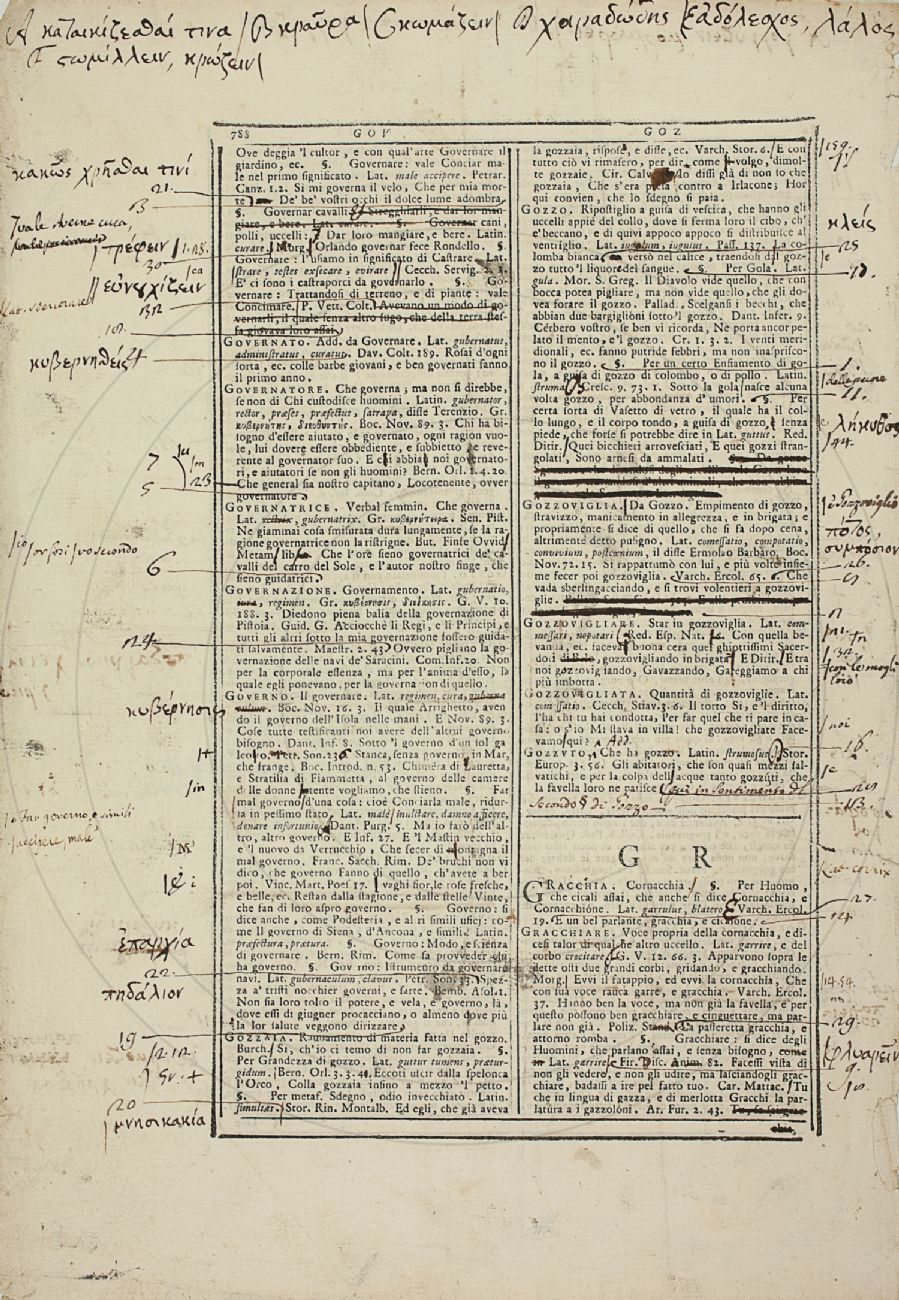 A καταικίζεσθαί τινα / B κραῦρα / C κωμάζειν / D χαραδώδης / E ἀδόλεσχος, λάλος
F στωμίλλειν, κρώζειν /
788 GOV
Ove deggia 'l cultor, e con qual'arte Governare il
giardino, ec. §. Governare: vale Conciar ma-
le nel primo significato. Lat. male accipere. Petrar.
Canz. 1.2. Si mi governa il velo, Che per mia mor-
te De' be' vostri occhi il dolce lume adombra.
§. Governar cavalli: Stregghiarli, e dar lor man-
giare, e bere. Lat. curare. §. Governar
polli, uccelli: Dar loro mangiare, e bere. Latin.
curare. Morg. Orlando governar fece Rondello. §.
Governare: l'usiamo in significato di Castrare. Lat.
castrare, testes exsecare, evirare. Cecch. Servig. 2. 1.
E' ci sono i castraporci da governarlo. §. Go-
vernare: Trattandosi di terreno, e di piante: vale
Concimare. P. Vett. Colt. Avevano un modo di go-
vernarli, il quale senza altro sugo, che della terra stes-
sa giovava loro assai.
GOVERNATO. Add. da Governare. Lat. gubernatus,
administratus, curatus. Dav. Colt. 189. Rosai d'ogni
sorta, ec. colle barbe giovani, e ben governati fanno
il primo anno.
GOVERNATORE. Che governa; ma non si direbbe,
se non di Chi custodisce huomini. Latin. gubernator,
rector, præses, præfectus, satrapa, disse Terenzio. Gr.
κυβερνήτης, διευθυντής. Boc. Nov. 89. 3. Chi ha bi-
sogno d'essere aiutato, e governato, ogni ragion vuo-
le, lui dovere essere obbediente, e subbietto, e reve-
rente al governator suo. E chi abbiam noi governato-
ri, e aiutatori se non gli huomini? Bern. Orl. 1. 4. 20.
Che general sia nostro capitano, Locotenente, ovver
governatore.
GOVERNATRICE. Verbal femmin. Che governa.
Lat. gubernatrix. Gr. κυβερνήτειρα. Sen. Pist.
Ne giammai cosa smisurata dura lungamente, se la ra-
gione governatrice non la ristrigne. But. Finse Ovvid.
Metam. lib. Che l'ore sieno governatrici de' ca-
valli del carro del Sole, e l'autor nostro finge, che
sieno guidatrici.
GOVERNAZIONE. Governamento. Lat. gubernatio,
cura, regimen. Gr. κυβέρνησις, διοίκησις. G. V. 10.
188. 3. Diedono piena balìa della governazione di
Pistoia. Guid. G. Acciocchè li Regi, e li Principi, e
tutti gli altri sotto la mia governazione fossero guida-
ti salvamente. Maestr. 2. 43. Ovvero pigliano la go-
vernazione delle navi de' Saracini. Com. Inf. 20. Non
per la corporale essenza, ma per l'anima d'esso, la
quale egli ponevano, per la governazion di quello.
GOVERNO. Il governare. Lat. regimen, cura, guberna-
culum. Boc. Nov. 16. 3. Il quale Arrighetto, aven-
do il governo dell'Isola nelle mani. E Nov. 89. 3.
Cose tutte testificanti noi avere dell'altrui governo
bisogno. Dant. Inf. 8. Sotto 'l governo d'un sol ga
leoto. Petr. Son. 236. Stanca, senza governo in Mar,
che frange. Boc. Introd. n. 53. Chimera di Lauretta,
e Stratilia di Fiammetta, al governo delle camere
di delle donne intente vogliamo, che stieno. §. Far
mal governo d'una cosa: cioè Conciarla male, ridur-
ta in pessimo stato. Lat. male mulctare, damno afficere,
donare infortunio. Dant. Purg. 5. Ma io farò dell'al-
tro, altro governo. E Inf. 27. E 'l Mastin vecchio,
e 'l nuovo da Verrucchio, Che fecer di Montagna il
mal governo. Franc. Sacch. Rim. De' bruchi non vi
dico, che governo Fanno di quello, ch'avete a ber
poi. Vinc. Mart. Poes. 17. I vaghi fior, le rose fresche,
e belle, ec. Restan dalla stagione, e dalle stelle Vinte,
che fan di loro aspro governo. §. Governo: si
dice anche, come Podesteria, e altri simili ufici: co-
me Il governo di Siena, d'Ancona, e simili. Latin.
præfectura, prætura. §. Governo: Modo, e scienza
di governare. Bern. Rim. Come fa provveder chi
ha governo. §. Governo: Istrumento da governar
navi. Lat. gubernaculum, clavus. Petr. Son. 33. Spez-
za a' tristi nocchier governi, e sarte. Bemb. Asol. 1.
Non sia loro tolto il potere, e vela, e governo, là,
dove essi di giugner procacciano, o almeno dove più
la lor salute veggono dirizzare.
GOZZAIA. Raunamento di materia fatta nel gozzo.
Burch. Si, ch'io ci temo di non far gozzaia. §.
Per Grandezza di gozzo. Lat. guttur tumens, prætur-
gidum. Bern. Orl. 3. 3. 41. Eccoti uscir dalla spelonca
l'Orco, Colla gozzaia infino a mezzo 'l petto.
§. Per metaf. Sdegno, odio invecchiato. Latin.
simultas. Stor. Rin. Montalb. Ed egli, che già aveva
GOZ
la gozzaia, rispose, e disse, ec. Varch. Stor. 6. E con
tutto ciò vi rimasero, per dir come 'l volgo, dimol-
te gozzaie. Cir. Calv. Io dissi già di non so che
gozzaia, Che s'era presa contro a Irlacone; Hor
qui convien, che lo sdegno si paia.
GOZZO. Ripostiglio a guisa di vescica, che hanno gli
uccelli appiè del collo, dove si ferma loro il cibo, ch'
e' beccano, e di quivi appoco appoco si distribuisce al
ventriglio. Lat. jugulum, iuguius. Pass. 137. La co-
lomba bianca versò nel calice, traendosi dal goz-
zo tutto 'l liquore del sangue. §. Per Gola. Lat.
gula. Mor. S. Greg. Il Diavolo vide quello, che con
bocca potea pigliar, ma non vide quello, che gli do-
vea forare il gozzo. Pallad. Scelgansi i becchi, che
abbian due bargiglioni sotto 'l gozzo. Dant. Infer. 9.
Cérbero vostro, se ben vi ricorda, Ne porta ancor pe-
lato il mento, e 'l gozzo. Cr. 1. 3. 2. I venti meri-
dionali, ec. fanno putride febbri, ma non inasprisco-
no il gozzo. §. Per un certo Enfiamento di go-
la, a guisa di gozzo di colombo, o di pollo. Latin.
struma. Cresc. 9. 73. 1. Sotto la gola nasce alcuna
volta gozzo, per abbondanza d'umori. §. Per
certa sorta di Vasetto di vetro, il quale ha il col-
lo lungo, e il corpo tondo, a guisa di gozzo, senza
piede, che forse si potrebbe dire in Lat. guttus. Red.
Ditir. Quei bicchieri arrovesciati, E quei gozzi stran-
golati, Sono arnesi da ammalati.
GOZZOVIGLIA. Da Gozzo. Empimento di gozzo,
stravizzo, manicamento in allegrezza, e in brigata; e
propriamente si dice di quello, che si fa dopo cena,
altrimente detto pusigno. Lat. comessatio, compotatio,
convivium, postcœnium, il disse Ermolao Barbaro. Boc.
Nov. 72. 15. Si rappattumò con lui, e più volte insie-
me fecer poi gozzoviglia. Varch. Ercol. 65. Che
vada sberlingacciando, e si trovi volentieri a gozzovi-
glie.
GOZZOVIGLIARE. Star in gozzoviglia. Lat. com-
messari, nepotari. Red. Esp. Nat. Con quella be-
vanda, ec. faceva buona cera quei ghiottissimi Sacer-
doti gozzovigliando in brigata. E Ditir. E tra
noi gozzovigliando, Gavazzando, Gareggiamo a chi
più imbotta.
GOZZOVIGLIATA. Quantità di gozzoviglie. Lat.
comessatio. Cecch. Stiav. 3. 6. Il torto Si, e 'l diritto,
l'ha chi tu hai condotta, Per far quel che ti pare in ca-
sa: o s'io Mi stava in villa! che gozzovigliate Face-
vamo qui? Add.
GOZZUTO. Che ha gozzo. Latin. strumosus. Stor.
Europ. 3. 56. Gli abitatori, che son quasi mezzi sal-
vatichi, e per la colpa dell'acque tanto gozzuti, che
la favella loro ne patisce. Qui in sentimento del
Secondo § di Gozzo
G R
GRACCHIA. Cornacchia. §. Per Huomo,
che cicali assai, che anche si dice Cornacchia, e
Cornacchione. Lat. garrulus, blatero. Varch. Ercol.
19. E un bel parlante, gracchia, e cicalone.
GRACCHIARE. Voce propria della cornacchia, e di-
cesi talor di qualche altro uccello. Lat. garrire, e del
corbo crocitare. G. V. 12. 66. 3. Apparvono sopra le
dette osti due grandi corbi, gridando, e gracchiando.
Morg. Evvi il fatappio, ed evvi la cornacchia, Che
con sua voce rauca garre, e gracchia. Varch. Ercol.
37. Hanno ben la voce, ma non già la favella, e per
questo possono ben gracchiare, e cinguettare, ma par-
lare non già. Poliz. Stanz. La passeretta gracchia, e
attorno romba. §. Gracchiare: si dice degli
Huomini, che parlano assai, e senza bisogno, come
in Lat. garrire. Fir. Disc. Anim. 82. Facessi vista di
non gli vedere, e non gli udire, ma lasciandogli grac-
chiare, badassi a ire pel fatto tuo. Car. Mattac. Tu
che in lingua di gazza, e di merlotta Gracchi la par-
latùra a i gazzolóni. Ar. Fur. 2. 43. Tu, se spignee
chia,
κακῶς χρῆσθαι τινί
21.
13
τρέφειν / ins.
30
εὐνουχίζειν
132
18.
κυβερνηθείς
7
5 23
6
24
κυβέρνησις
far governo, o simili
accipere male
ἐπαρχία
22.
πηδάλιον
19
20
μνησικακία
159.
κλείς
25
10.
1.
11.
λήκυθος
44.
Gozzoviglio
πότος,
συμπόσιον
26.
32.
16.
13.
Lat. cornix
27.
14
14. 54.
29.
φλυαρεῖν
9.